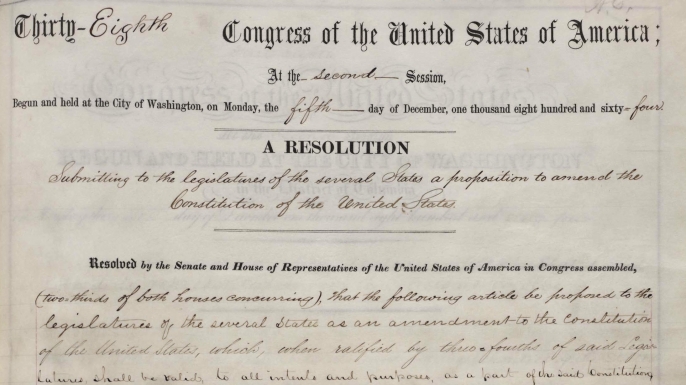 Thirty-Eighth Congress of the United States of America;
At the second Session,
Begun and held at the City of Washington, on Monday, the fifth day of December, one thousand eight hundred and sixty-four.
A RESOLUTION
Submitting to the legislatures of the several States a proposition to amend the
Constitution of the United States.
Resolved by the Senate and House of Representatives of the United States of America in Congress assembled,
(two-thirds of both houses concurring), That the following article be proposed to the
legislatures of the several States as an amendment to the Constitution
of the United States, which, when ratified by three-fourths of said Legis-
latures, shall be valid, to all intents and purposes, as a part of the said Constitution,